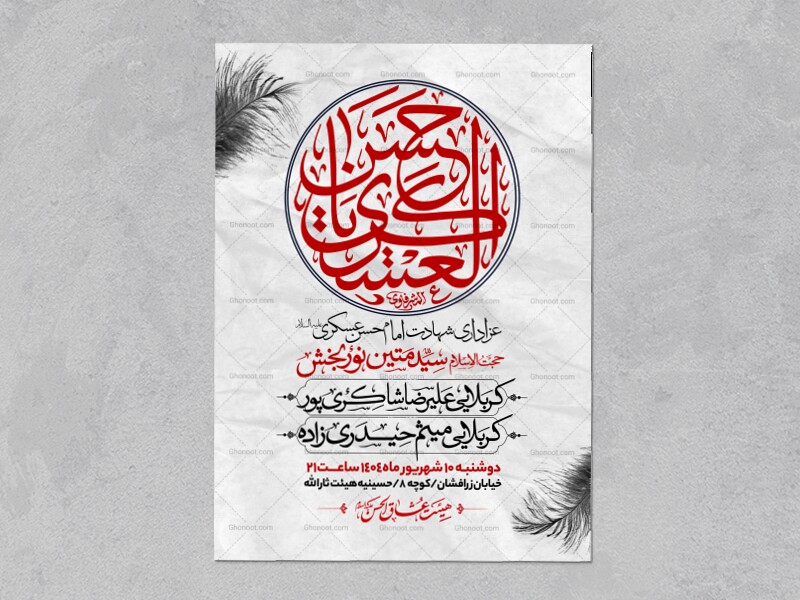 یا حسن العسکری
عزاداری شهادت امام حسن عسکری علیه السلام
حجت الاسلام سید متین نوربخش
کربلایی علیرضا شاکری پور
کربلایی میثم حیدری زاده
دوشنبه ۱۰ شهریور ماه ۱۴۰۴ ساعت ۲۱
خیابان زرافشان / کوچه ۸ / حسینیه هیئت ثارالله
هیئت عشاق الحسن
Ghonoot.com